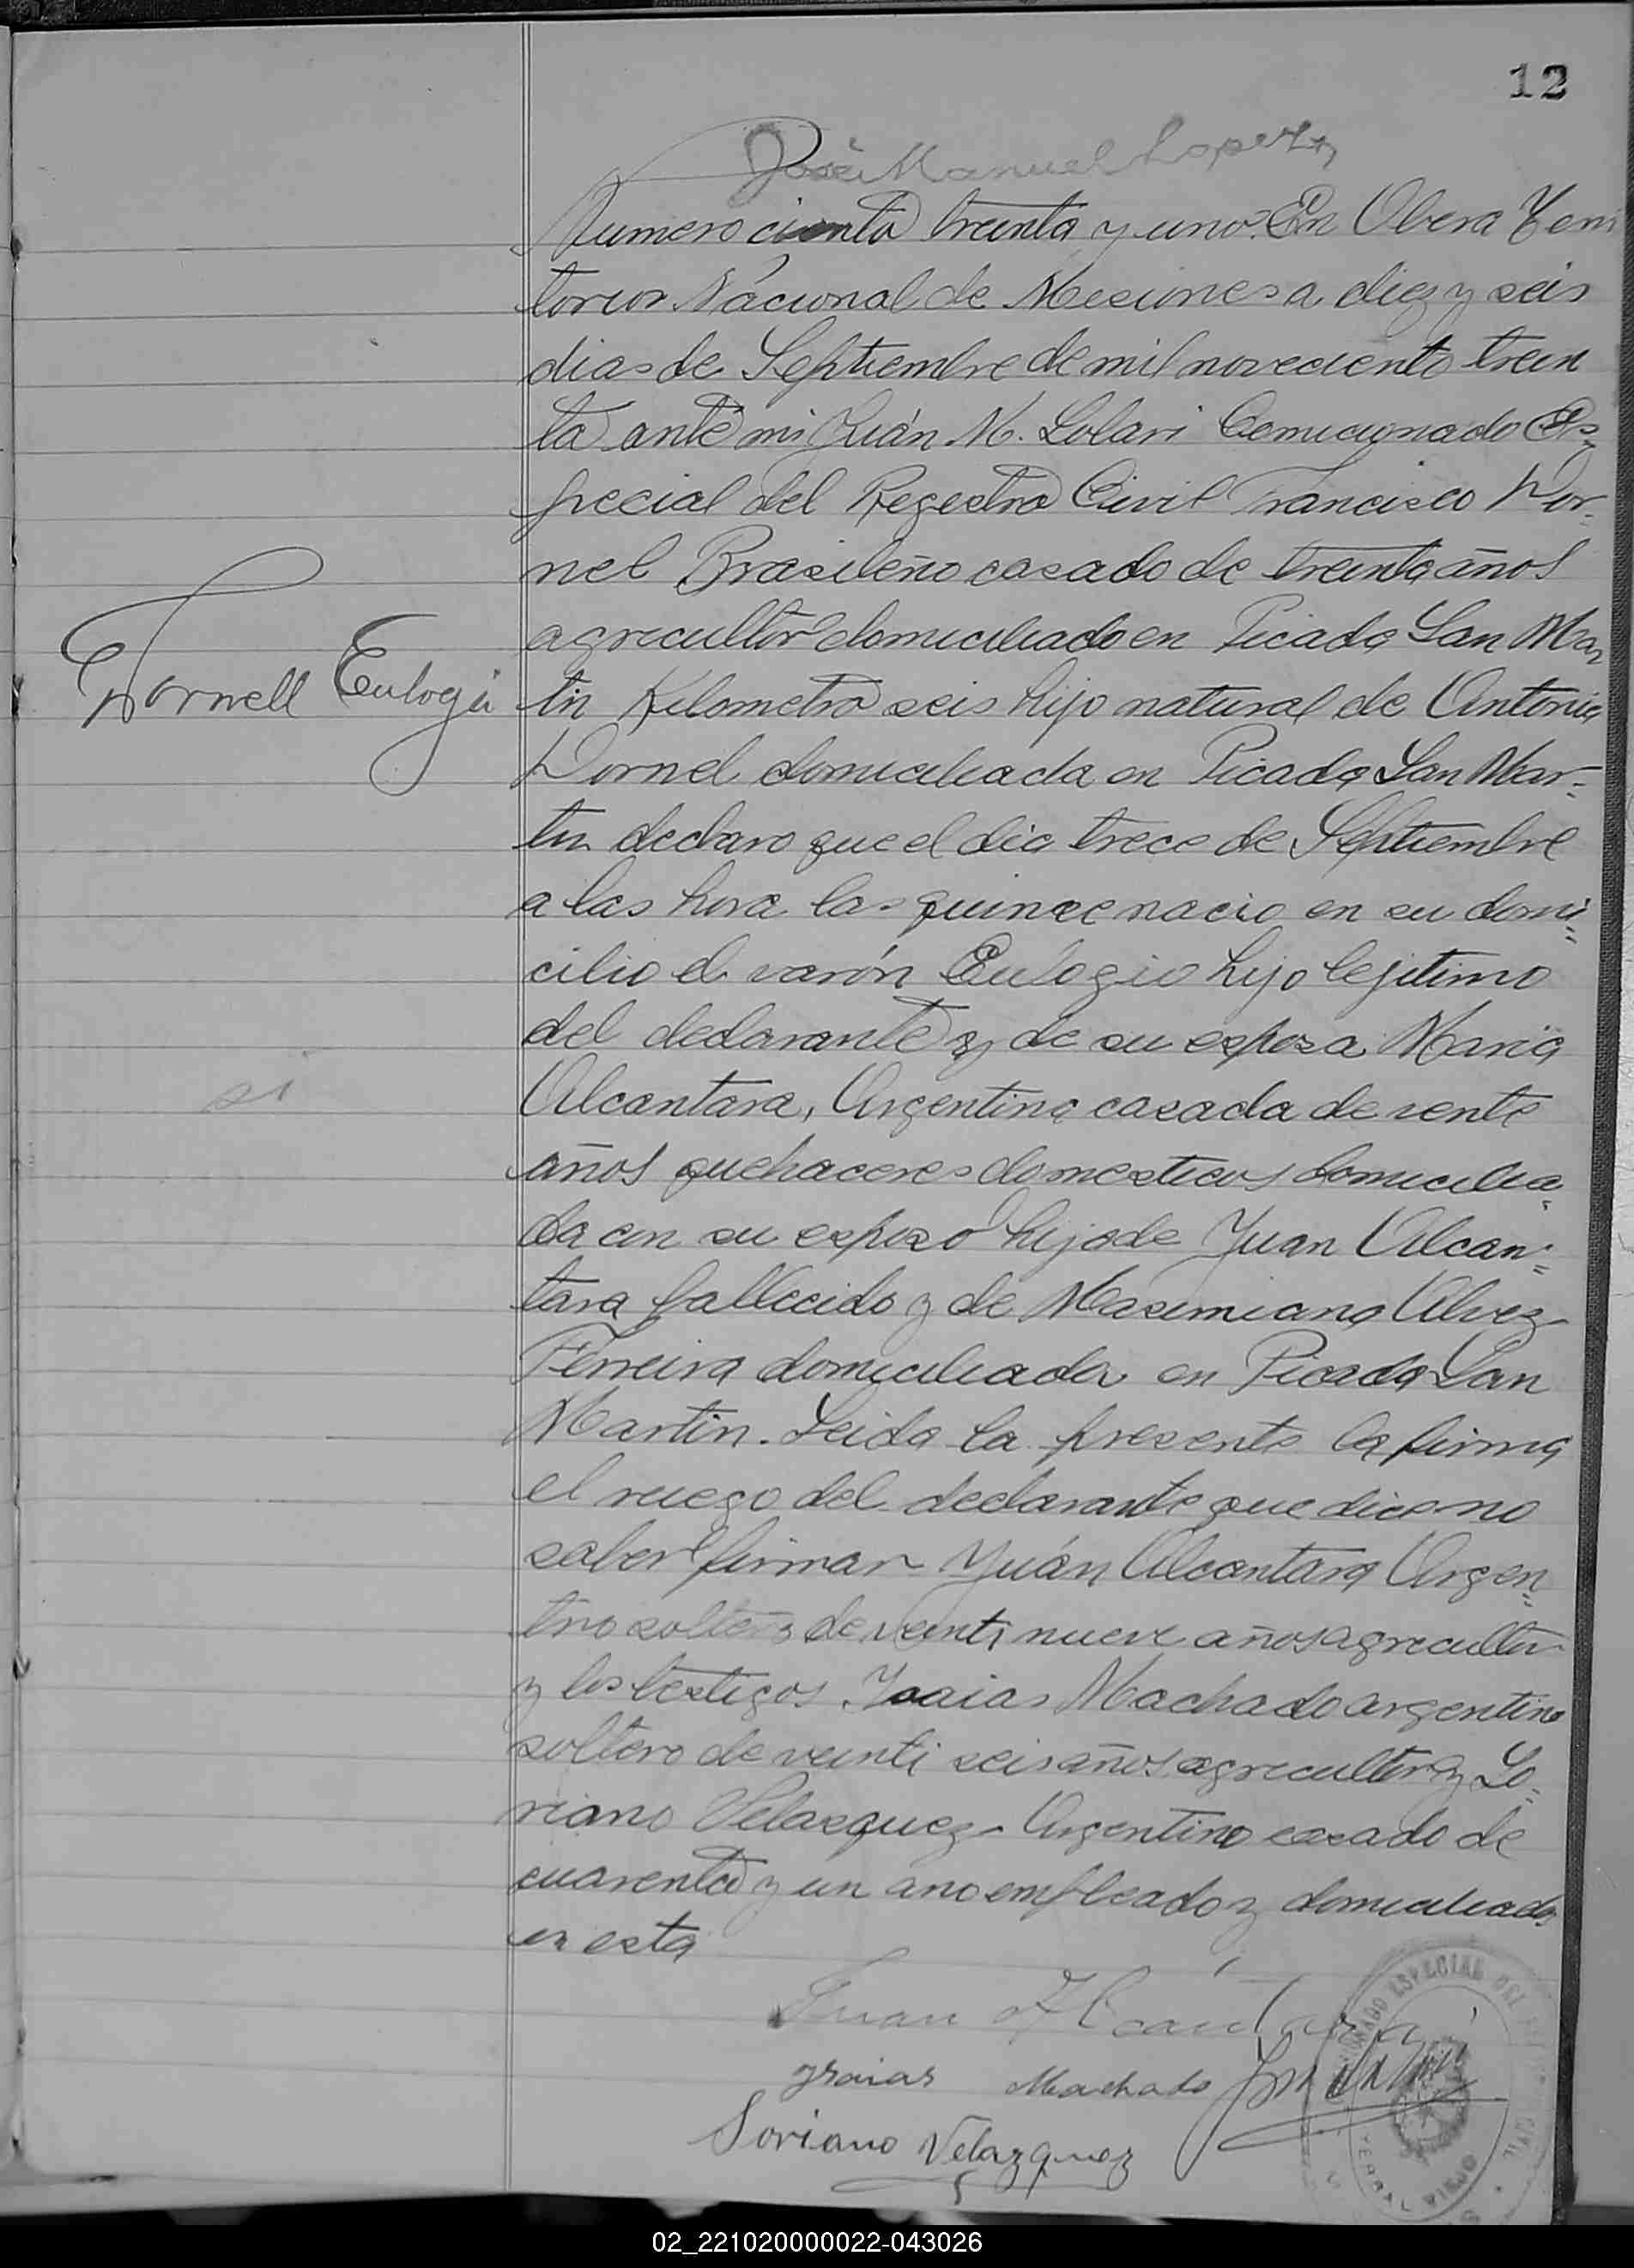 12
José Manuel Lopez
Numero ciento treinta y uno. En Obera Terri
torior Nacional de Misiones a diez y seis
dias de Septiembre de mil noveciento trein
ta ante mi Juán M. Solari Comicionado Es-
pecial del Registro Civil Francisco Dor-
nel Brasileño casado de treinta años
agricultor domiciliado en Picada San Mar
Dornell Eulogio
tin Kilometro seis hijo natural de Antonia
Dornel domiciliada en Picada San Mar-
tin declaro que el dia trece de Septiembre
a las hora las quince nacio en su domi-
cilio el varón Eulogio hijo lejitimo
del declarante y de su esposa Maria
si
Alcantara, Argentina casada de vente
años quehaceres domesticos domicilia-
da con su esposo hija de Juan Alcan-
tara fallecido y de Masimiana Alvez
Ferreira domiciliada en Picada San
Martin. Leida la presente la firma
el ruego del declarante que dice no
saber firmar Juán Alcantara Argen-
tino soltero de veinti nueve años agricultor
y los testigos Isaias Machado argentino
soltero de veinti seis años agricultor y So-
riano Velasquez Argentino casado de
cuarenta y un ano empleado y domiciliados
en esta
Juan Alcantara
Ysaias Machado
Soriano Velazquez
ESPECIAL DEL
CIVIL
YERBAL VIEJO
02_221020000022-043026